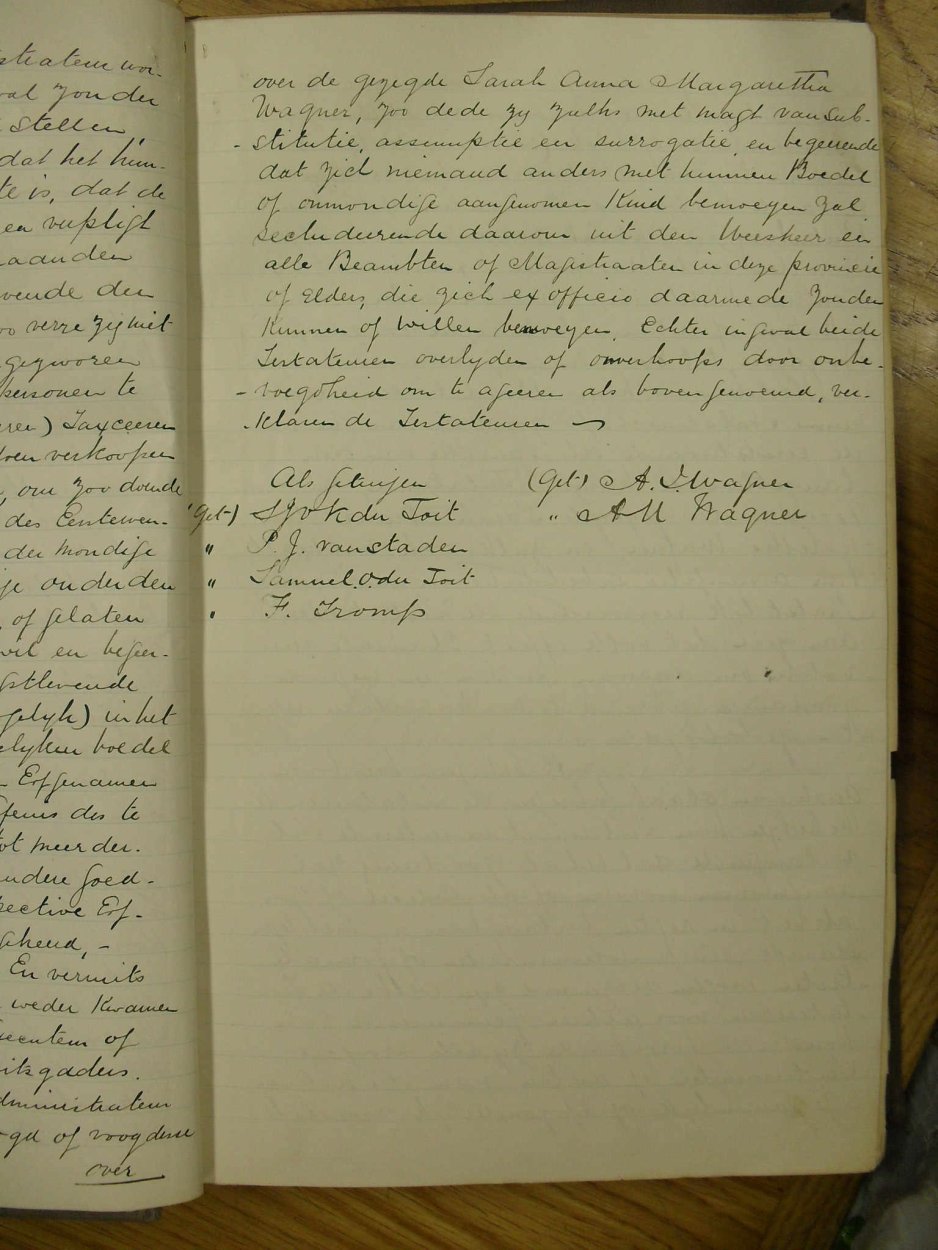 stratem wor-
val zonder
stellen,
dat het hun-
te is, dat de
en verpligt
aanden
vende den
oo verre zy niet
gezworen
personen te
ren) Taxceeren
doen verkoopen
, om zoo doende
des Eerstewen-
der mondige
je onder den
of gelaten
wil en begeer-
gstlevende
gelyk) in het
elyken boedel
Erfgenamen
fenis des te
tot meerder-
andere goed-
pective Erf-
gaheid, -
En vermits
weder Kwamen
uecutem of
itsgaders.
dministrateur
gd of voogdesse
over
over de gezegde Sarah Anna Margaretha
Wagner, zoo dede zy zulks met magt van Sub-
- stitutie, assumptie en surrogatie, en begeerende
dat zich niemand anders met hunnen Boedel
of onmondige aangenomen Kind bemoeyen zal
secludeerende daarom uit den Weesheer en
alle Beambten of Magistraaten in deze provincie
of Elders, die zich ex officio daarmede zouden
Kunnen of willen bemoeyen. Echter ingeval beide
Testateuren overlyden of onverhoops door onbe-
- voegdheid om te ageeren als bovengenoemd, ver-
- klaren de Testateuren
Als getuigen (Get) A. J. Wagner
(Get) S J v K du Toit " A M Wagner
" P. J. van Staden
" Samuel. O. du Toit
" F. Tromp